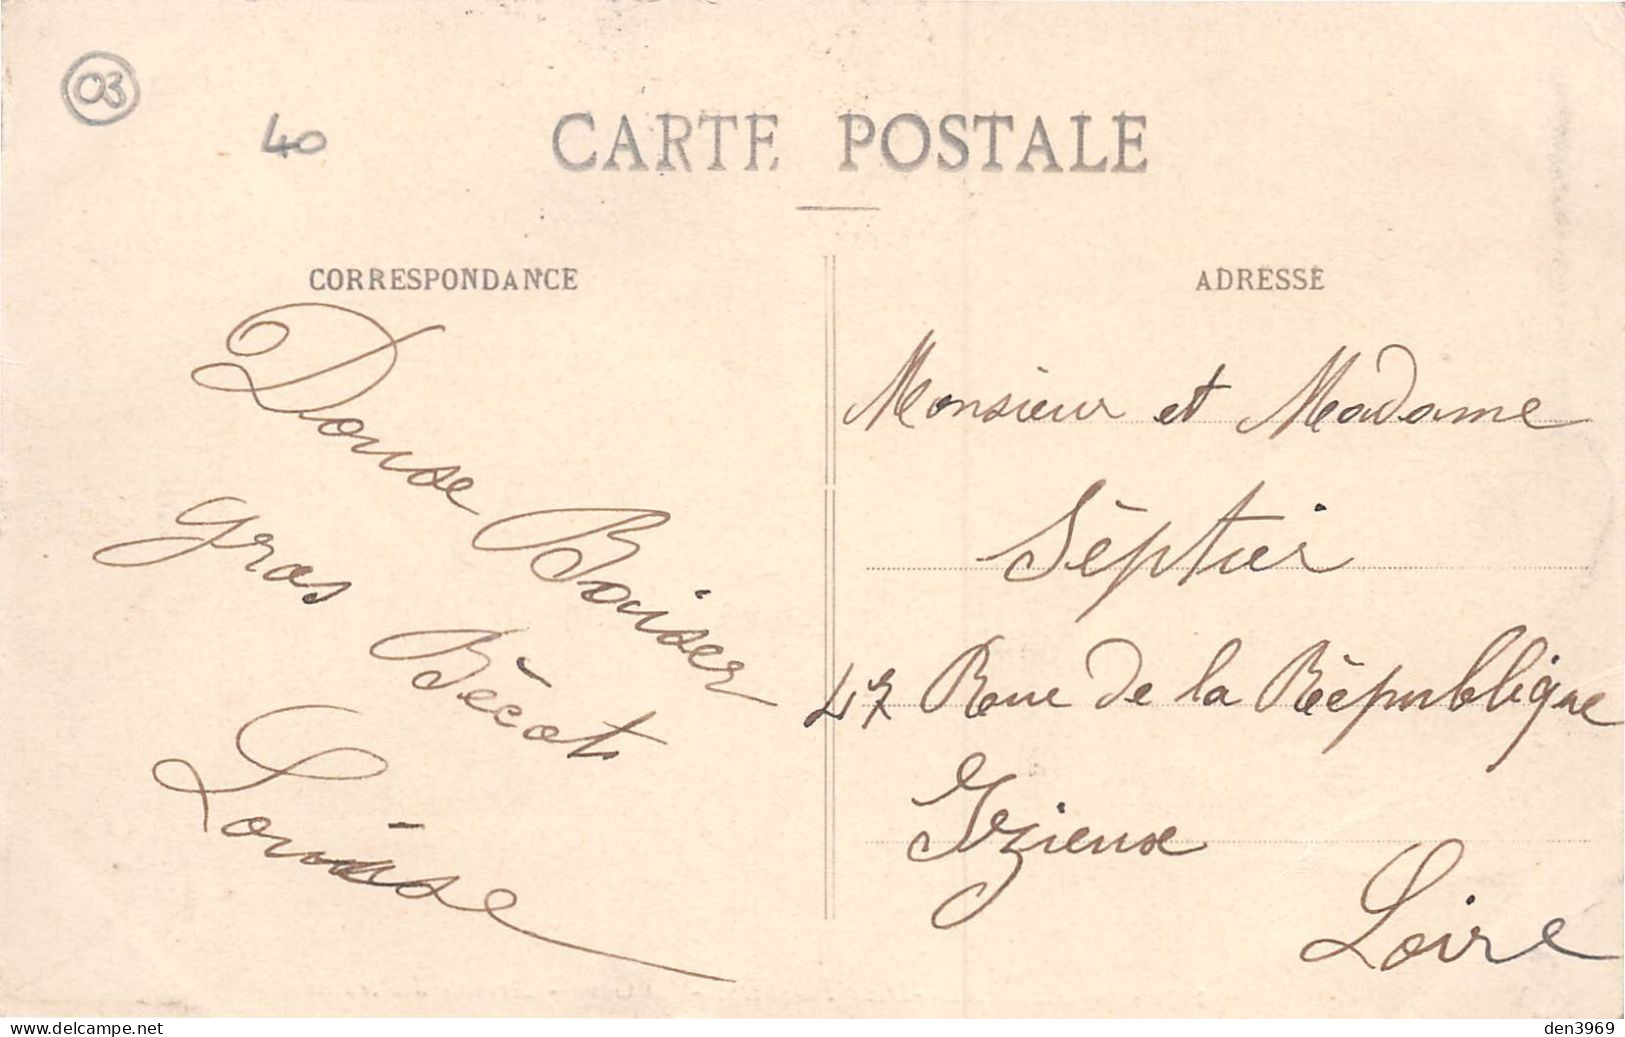 03
40
CARTE POSTALE
CORRESPONDANCE
Douse Baiser
gros Bècot
Louise
ADRESSE
Monsieur et Madame
Sèptier
47 Rue de la Rèpublique
Izieux
Loire
www.delcampe.net
den3969